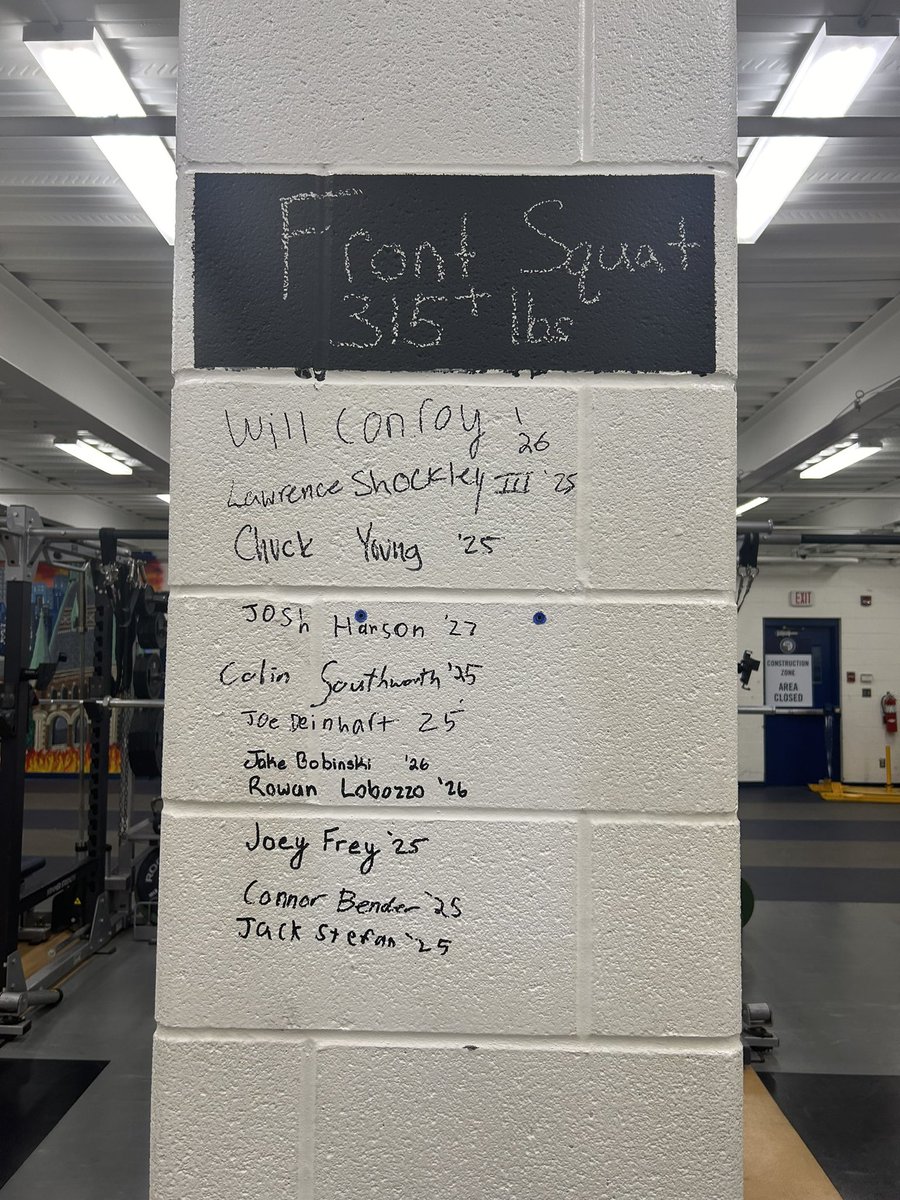 Front Squat
315+ lbs
Will Conroy '26
Lawrence Shockley III '25
Chuck Young '25
Josh Harson '27
Colin Southworth '25
Joe Deinhart 25
Jake Bobinski '26
Rowan Lobozzo '26
Joey Frey '25
Connor Bender '25
Jack Stefan '25
EXIT
CONSTRUCTION
ZONE
AREA
CLOSED